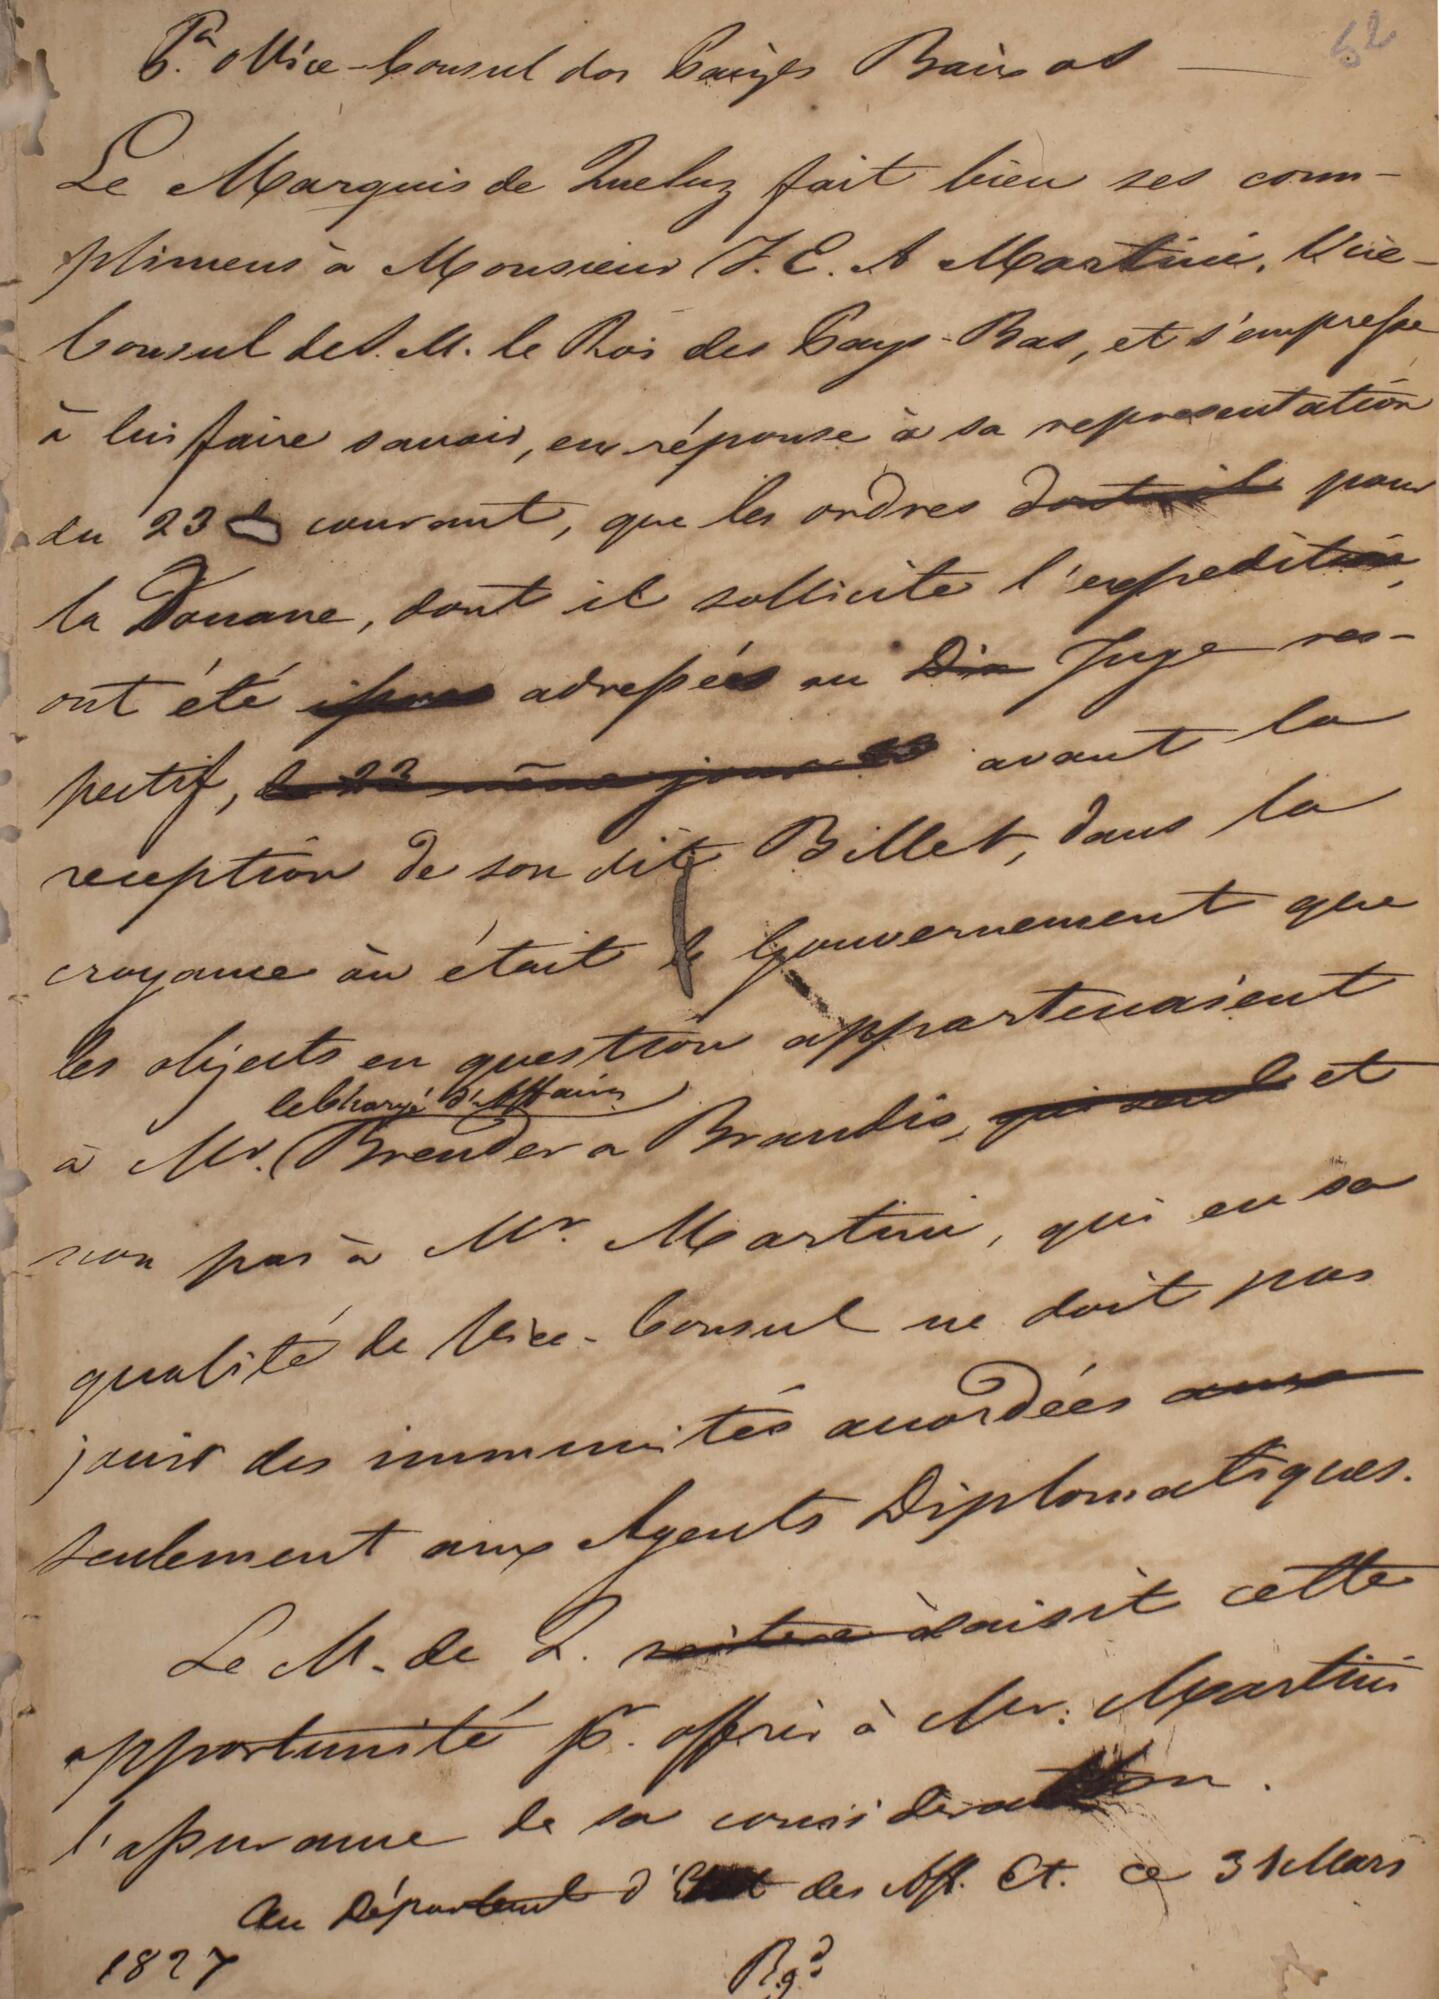 Pa. o Vice-Consul dos Paizes Baixos
52
Le Marquis de Queluz fait bien ses com-
plimens à Monsieur J. E. A Martini, Vice-
Consul de S. M. le Roi des Pays-Bas, et s'empresse
à lui faire savoir, en réponse à sa representation
du 23 courant, que les ordres dont il pour
la Douane, dont il sollicite l'expedition,
ont été adressées au Juge res-
pectif, le 23 même jour avant la
reception de son dit Billet, dans la
croyance où était le Gouvernement que
les objects en question appartenaient
le Chargé d'Affaires
à Mr. Brender a Brandis, qui seul et
non pas à Mr. Martini, qui en sa
qualité de Vice-Consul ne doit pas
jouir des immunités accordées aux
seulement aux Agents Diplomatiques.
Le M. de Q. saisit cette
opportunité pr. offrir à Mr. Martini
l'assurance de sa consideration.
Au Département d'Etat des Aff. Et. ce 31 Mars
1827